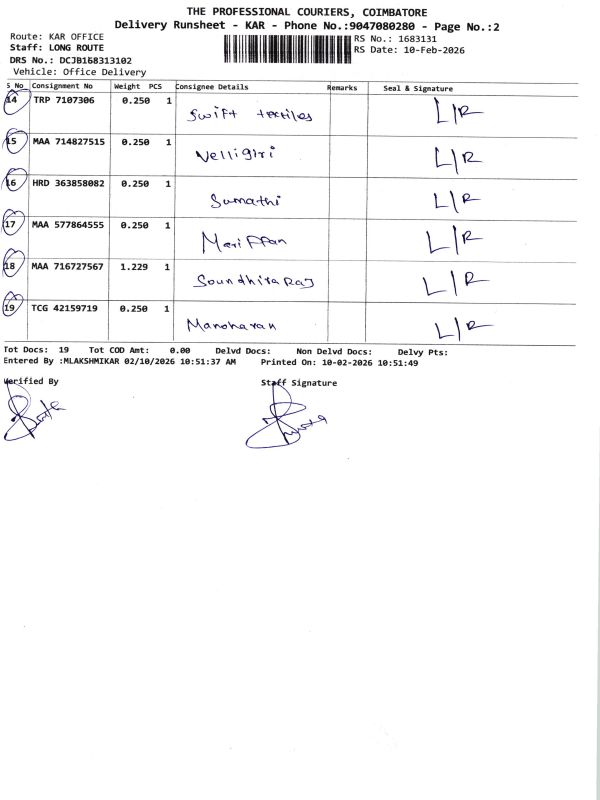 THE PROFESSIONAL COURIERS, COIMBATORE
Delivery Runsheet - KAR - Phone No.:9047080280 - Page No.:2
Route: KAR OFFICE
RS No.: 1683131
Staff: LONG ROUTE
RS Date: 10-Feb-2026
DRS No.: DCJB168313102
Vehicle: Office Delivery
S No Consignment No Weight PCS Consignee Details Remarks Seal & Signature
14 TRP 7107306 0.250 1 Swift textiles L/R
15 MAA 714827515 0.250 1 Velligiri L/R
16 HRD 363858082 0.250 1 Sumathi L/R
17 MAA 577864555 0.250 1 Mariffan L/R
18 MAA 716727567 1.229 1 Soundhiraraj L/R
19 TCG 42159719 0.250 1 Manoharan L/R
Tot Docs: 19 Tot COD Amt: 0.00 Delvd Docs: Non Delvd Docs: Delvy Pts:
Entered By :MLAKSHMIKAR 02/10/2026 10:51:37 AM Printed On: 10-02-2026 10:51:49
Verified By Staff Signature